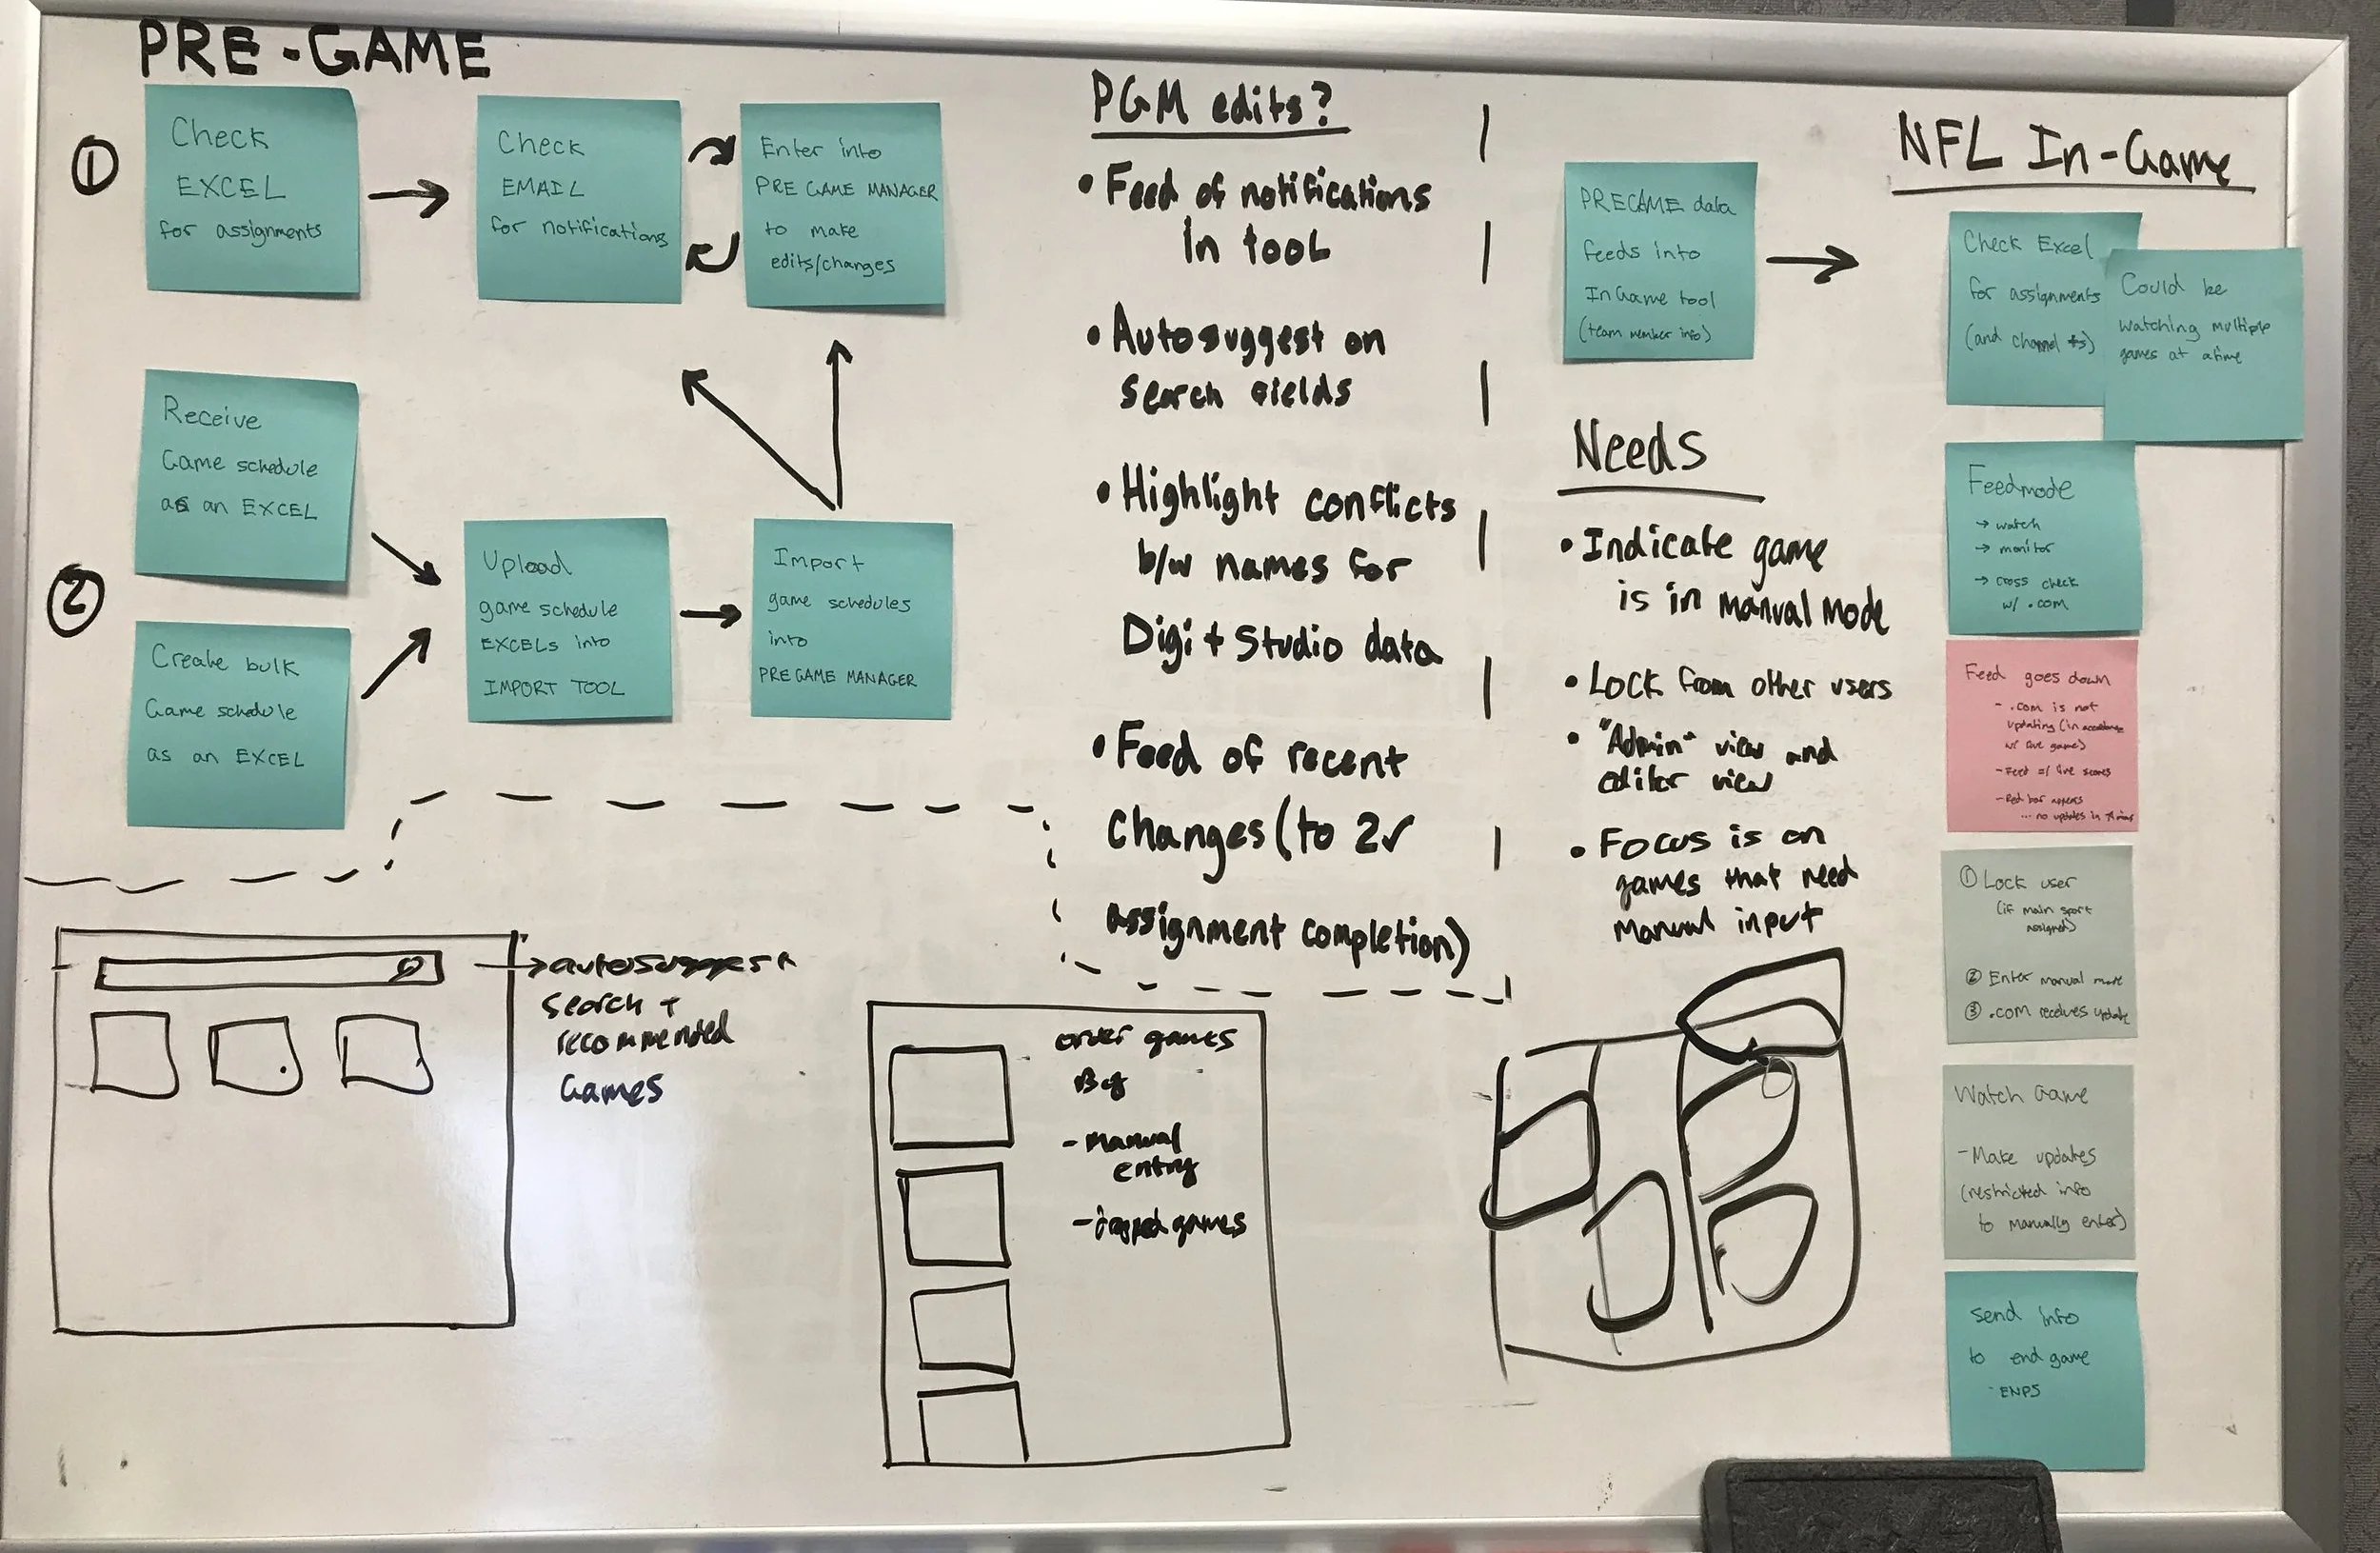 PRE-GAME
①
Check
EXCEL
for assignments
Check
EMAIL
for notifications
Enter into
PRE GAME MANAGER
to make
edits/changes
②
Receive
Game schedule
as an EXCEL
Create bulk
Game schedule
as an EXCEL
Upload
game schedule
EXCELs into
IMPORT TOOL
Import
game schedules
into
PREGAME MANAGER
PGM edits?
• Feed of notifications
in tool
• Autosuggest on
search fields
• Highlight conflicts
b/w names for
Digi + Studio data
• Feed of recent
changes (to 2✓
assignment completion)
autosuggest
search +
recommended
Games
order games
By
- Manual
entry
games
PREGAME data
feeds into
InGame tool
(team member info)
Needs
• Indicate game
is in manual mode
• Lock from other users
• "Admin" view and
editor view
• Focus is on
games that need
manual input
NFL In-Game
Check Excel
for assignments
(and channel #s)
Could be
watching multiple
games at a time
Feedmode
→ watch
→ monitor
→ cross check
w/ .com
Feed goes down
- .com is not
updating (in accordance
w/ live game)
- Feed ≠ live scores
- Red bar appears
... no updates in
① Lock user
(if main sport
assigned)
② Enter manual mode
③ .com receives update
Watch Game
- Make updates
(restricted info
to manually enter)
Send info
to end game
- ENPS